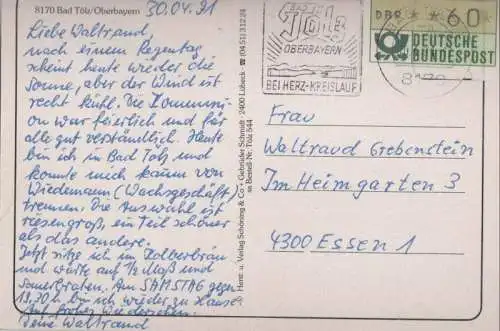 8170 Bad Tölz/Oberbayern
30.04.91
Liebe Waltraud,
nach einem Regentag
scheint heute wieder die
Sonne, aber der Wind ist
recht kühl. Die Kommuni-
on war feierlich und für
alle gut verständlich. Heute
bin ich in Bad Tölz und
konnte mich kaum von
Wiedemann (Wachsgeschäft)
trennen. Die Auswahl ist
riesengroß, ein Teil schöner
als das andere.
Jetzt sitze ich im Kolberbräu
und warte auf ½ Maß und
Sauerbraten. Am SAMSTAG gegen
13,30 h bin ich wieder zu Hause.
Auf frohes Wiedersehen.
Deine Waltraud
Herst. u. Verlag Schöning & Co + Gebrüder Schmidt · 2400 Lübeck · ☎ (04 51) 3 12 24
Bestell-Nr. Tölz 544
BAD
Tölz
OBERBAYERN
BEI HERZ-KREISLAUF
DBP **60
DEUTSCHE
BUNDESPOST
Frau
Waltraud Grebenstein
Im Heimgarten 3
4300 ESSEN 1